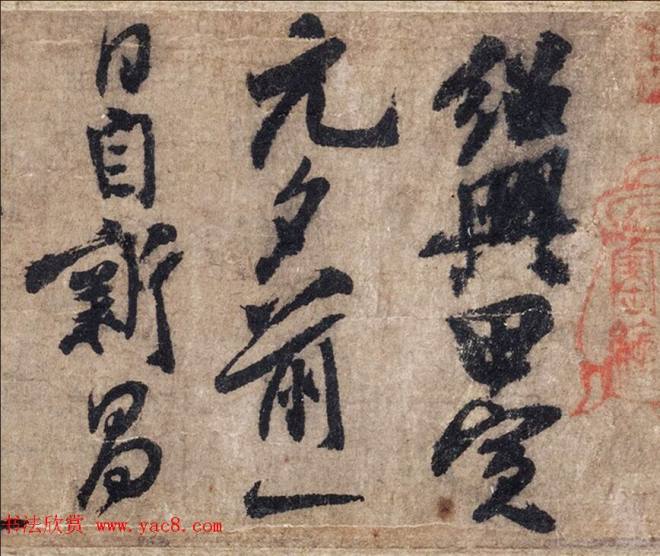 紹興甲寅
元夕前一
日自新昌
书法欣赏 www.yac8.com